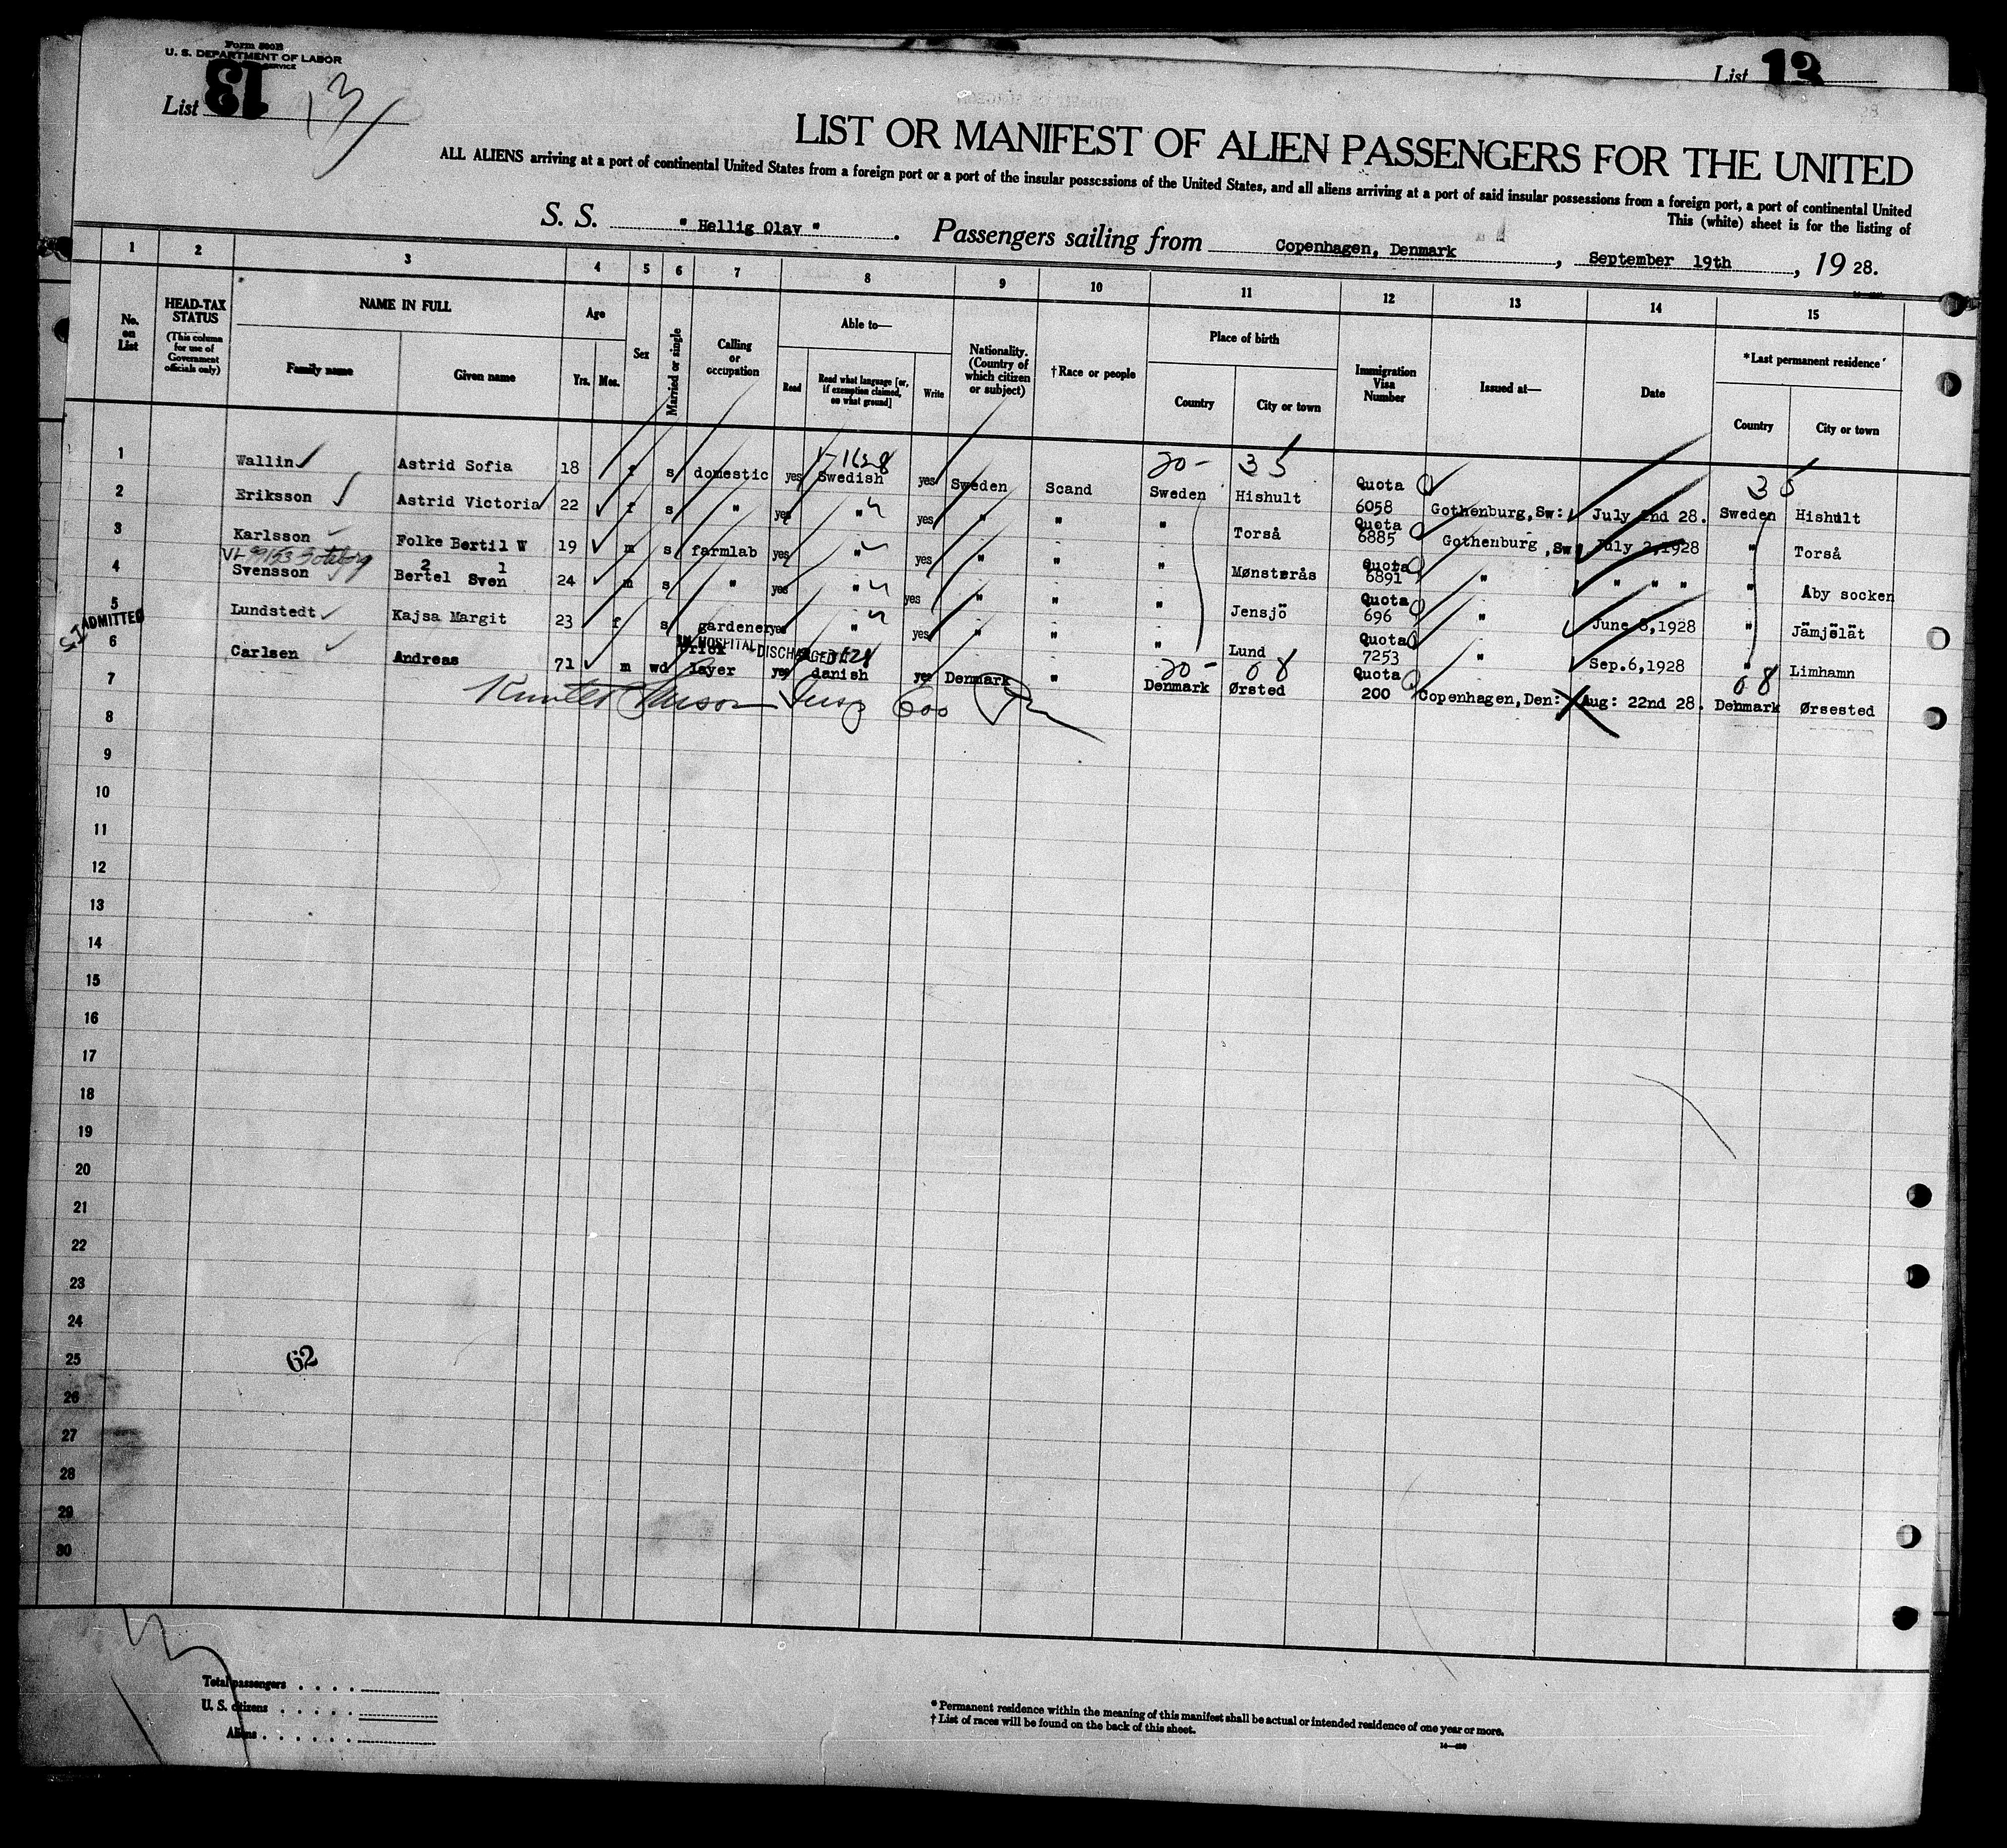 Form 500B
U. S. DEPARTMENT OF LABOR
SERVICE
List 13 13
List 13
LIST OR MANIFEST OF ALIEN PASSENGERS FOR THE UNITED
ALL ALIENS arriving at a port of continental United States from a foreign port or a port of the insular possessions of the United States, and all aliens arriving at a port of said insular possessions from a foreign port, a port of continental United
This (white) sheet is for the listing of
S. S. " Hellig Olav " . Passengers sailing from Copenhagen, Denmark , September 19th , 19 28.
1 2 3 4 5 6 7 8 9 10 11 12 13 14 15
No. on List
HEAD-TAX STATUS
(This column for use of Government officials only)
NAME IN FULL
Family name Given name
Age
Yrs. Mos.
Sex
Married or single
Calling or occupation
Able to—
Read Read what language [or, if exemption claimed, on what ground] Write
Nationality. (Country of which citizen or subject)
†Race or people
Place of birth
Country City or town
Immigration Visa Number
Issued at—
Date
*Last permanent residence
Country City or town
20- 35 35
1 Wallin Astrid Sofia 18 f s domestic yes Swedish yes Sweden Scand Sweden Hishult Quota 6058 Gothenburg,Sw: July 2nd 28. Sweden Hishult
2 Eriksson Astrid Victoria 22 f s " yes " yes " " " Torså Quota 6885 Gothenburg ,Sw July 2,1928 " Torså
3 Karlsson Folke Bertil W 19 m s farmlab yes " yes " " " Mønsterås Quota 6891 " " " " " Åby socken
2 1
4 Svensson Bertel Sven 24 m s " yes " yes " " " Jensjö Quota 696 " June 8,1928 " Jämjølät
5 Lundstedt Kajsa Margit 23 f s gardener yes " yes " " " Lund Quota 7253 " Sep.6,1928 " Limhamn
ADMITTED
S I
IN HOSPITAL-DISCHARGED
20- 68 68
6 Carlsen Andreas 71 m wd brick layer yes danish yes Denmark " Denmark Ørsted Quota 200 Copenhagen,Den: Aug: 22nd 28. Denmark Ørsested
7
8
9
10
11
12
13
14
15
16
17
18
19
20
21
22
23
24
25
62
26
27
28
29
30
Total passengers
U. S. citizens
Aliens
* Permanent residence within the meaning of this manifest shall be actual or intended residence of one year or more.
† List of races will be found on the back of this sheet.